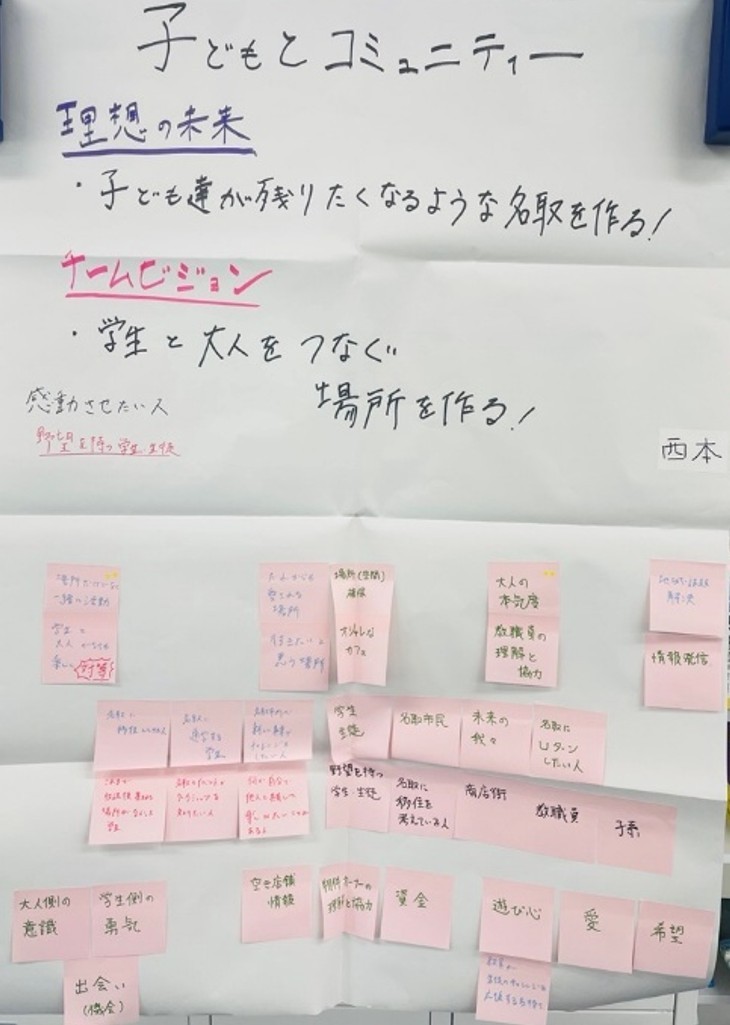 子どもとコミュニティー
理想の未来
・子ども達が残りたくなるような名取を作る!
チームビジョン
・学生と大人をつなぐ
場所を作る!
感動させたい人
野望を持つ学生・生徒
西本
場所だけでない
一緒に活動
学生と
大人たちも
楽しく対等
愛される
場所
行きたいと
思う場所
場所(空間)
確保
オシャレな
カフェ
大人の
本気度
教職員の
理解と
協力
解決
情報発信
名取に
移住したい人
名取に
通学する
学生
学生
生徒
名取市民
未来の
我々
名取に
Uターン
したい人
野望を持つ
学生・生徒
名取に
移住を
考えている人
商店街
教職員
子系
大人側の
意識
学生側の
勇気
出会い
(機会)
空き店舗
情報
物件オーナーの
理解と協力
資金
遊び心
愛
希望